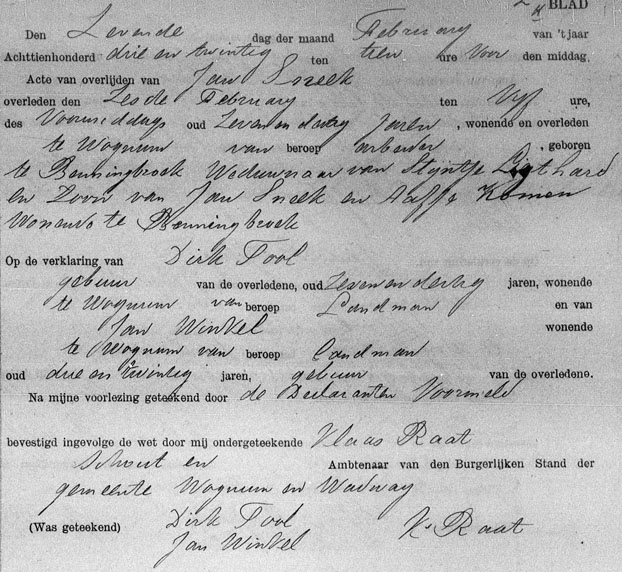 BLAD
Den Zevende dag der maand February van 't jaar
Achttienhonderd drie en twintig ten tien ure voor den middag.
Acte van overlijden van Jan Sneek
overleden den Zesde February ten Vyf ure,
des Voormiddags oud Zeven en dertig Jaren, wonende en overleden
te Wognum van beroep arbeider, geboren
te Benningbroek Weduwnaar van Styntje Ligthard
en Zoon van Jan Sneek en Aafje Komen
Wonende te Benningbroek
Op de verklaring van Dirk Tool
gebuur van de overledene, oud Zeven en dertig jaren, wonende
te Wognum van beroep Landman en van
Jan Winkel wonende
te Wognum van beroep Landman
oud drie en twintig jaren, gebuur van de overledene.
Na mijne voorlezing geteekend door de Declaranten Voormeld
bevestigd ingevolge de wet door mij ondergeteekende Klaas Raat
Schout en Ambtenaar van den Burgerlijken Stand der
gemeente Wognum en Wadway
(Was geteekend) Dirk Tool Ks Raat
Jan Winkel